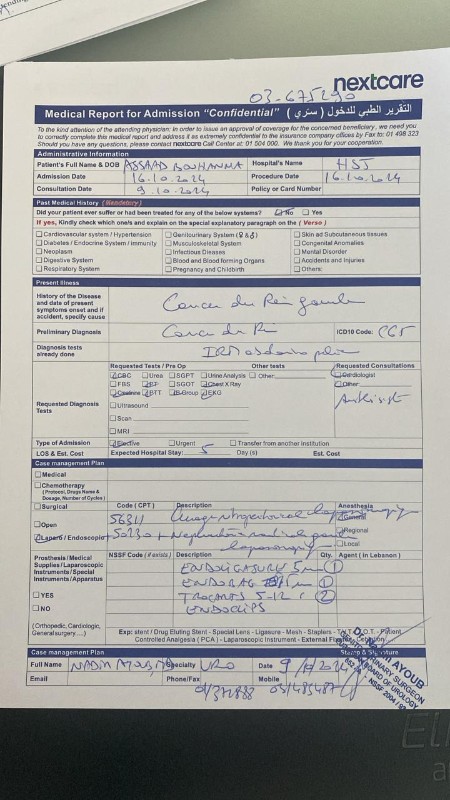 nextcare
03-675290
Medical Report for Admission "Confidential" ( سري ) التقرير الطبي للدخول
To the kind attention of the attending physician: In order to issue an approval of coverage for the concerned beneficiary, we need you
to correctly complete this medical report and address it as extremely confidential to the insurance company offices by Fax to: 01 498 323
Should you have any questions, please contact nextcare Call Center at: 01 504 000. We thank you for your cooperation.
Administrative Information
Patient's Full Name & DOB ASSAAD BOUHANNA Hospital's Name HSJ
Admission Date 16.10.2024 Procedure Date 16.10.2024
Consultation Date 9.10.2024 Policy or Card Number
Past Medical History (Mandatory)
Did your patient ever suffer or had been treated for any of the below systems? No Yes
If yes, Kindly check which one/s and explain on the special explanatory paragraph on the ( Verso )
Cardiovascular system / Hypertension Genitourinary System Skin ad Subcutaneous tissues
Diabetes / Endocrine System / Immunity Musculoskeletal System Congenital Anomalies
Neoplasm Infectious Diseases Mental Disorder
Digestive System Blood and Blood forming Organs Accidents and Injuries
Respiratory System Pregnancy and Childbirth Others:
Present Illness
History of the Disease
and date of present
symptoms onset and if
accident, specify cause
Cancer du Rein gauche
Preliminary Diagnosis Cancer du ICD10 Code: C65
Diagnosis tests
already done
IRM
Requested Diagnosis
Tests
Requested Tests / Pre Op Other tests Requested Consultations
CBC Urea SGPT Urine Analysis Other Cardiologist
FBS SGOT Chest X Ray Other
Creatinine PTT B.Group EKG
Ultrasound
Scan
MRI
Type of Admission Elective Urgent Transfer from another institution
LOS & Est. Cost Expected Hospital Stay: 5 Day (s) Est. Cost
Case management Plan
Medical
Chemotherapy
( Protocol, Drugs Name &
Dosage, Number of Cycles )
Surgical Code ( CPT ) Description Anesthesia
Open 56311 General
Regional
Laparo / Endoscopic 50230 + laparoscopic Local
Prosthesis / Medical
Supplies / Laparoscopic
Instruments / Special
Instruments / Apparatus
NSSF Code (if exists) Description Qty. Agent ( In Lebanon )
ENDOLIGASURE 5mm 1
YES ENDOBAG 1
NO TROCARTS 5-12 2
ENDOCLIPS
(Orthopedic, Cardiologic,
General surgery ....)
Exp: stent / Drug Eluting Stent - Special Lens - Ligasure - Mesh - Staplers - T.V.T. - T.O.T. - Patient
Controlled Analgesia ( PCA ) - Laparoscopic Instrument - External Fixator
Case management Plan Stamp & Signature
Full Name NADIM AYOUB Specialty URO Date 9
Email Phone/Fax Mobile
03/485487
AYOUB
URINARY SURGEON
BOARD OF UROLOGY
NSSF 2004